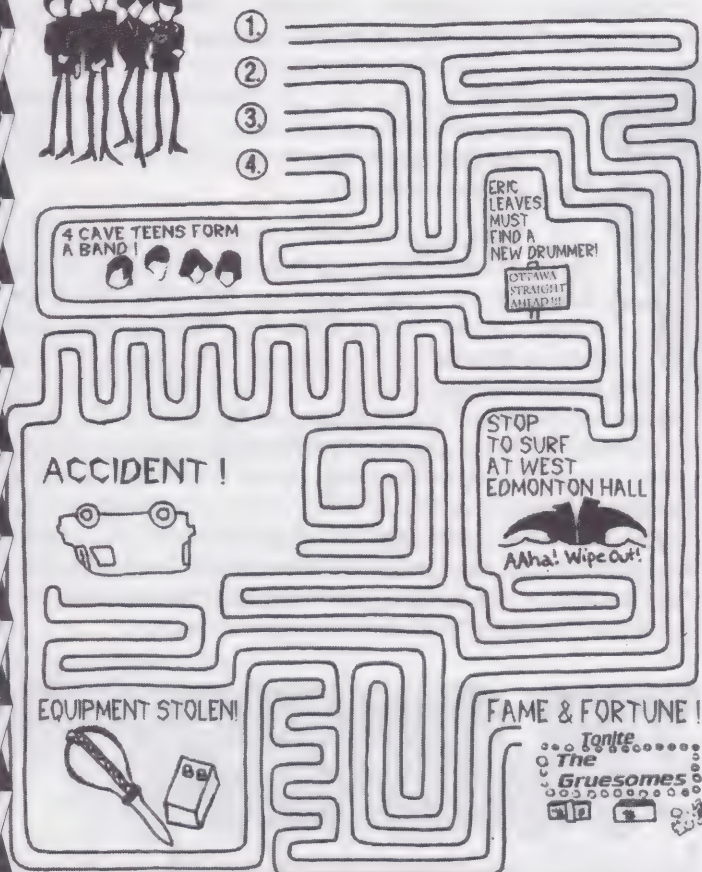 1.
2.
3.
4.
4 CAVE TEENS FORM
A BAND !
ERIC
LEAVES
MUST
FIND A
NEW DRUMMER!
OTTAWA
STRAIGHT
AHEAD !!!
ACCIDENT !
STOP
TO SURF
AT WEST
EDMONTON HALL
AAha! Wipe Out!
EQUIPMENT STOLEN!
FAME & FORTUNE !
Tonite
The
Gruesomes